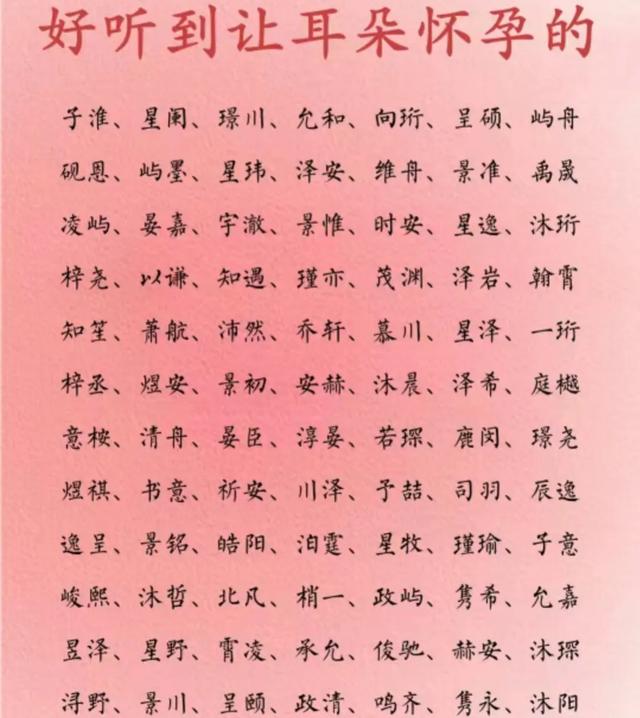 好听到让耳朵怀孕的
子淮、星阑、璟川、允和、向珩、呈硕、屿舟
砚恩、屿墨、星玮、泽安、维舟、景准、禹晟
凌屿、晏嘉、宇澈、景惟、时安、星逸、沐珩
梓尧、以谦、知遇、瑾亦、茂渊、泽岩、翰霄
知笙、萧航、沛然、乔轩、慕川、星泽、一珩
梓丞、煜安、景初、安赫、沐晨、泽希、庭樾
意桉、清舟、晏臣、淳晏、若琛、鹿闵、璟尧
煜祺、书意、祈安、川泽、予喆、司羽、辰逸
逸呈、景铭、皓阳、泊霆、星牧、瑾瑜、子意
峻熙、沐哲、北凡、梢一、政屿、隽希、允嘉
昱泽、星野、霄凌、承允、俊驰、赫安、沐琛
浔野、景川、呈颐、政清、鸣齐、隽永、沐阳